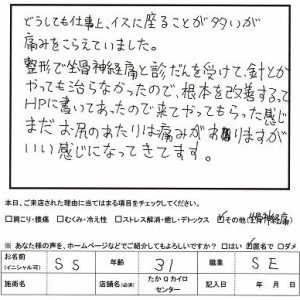 どうしても仕事上、イスに座ることが多いが
痛みをこらえていました。
整形で坐骨神経痛と診だんを受けて、針とか
やっても治らなかったので、根本を改善するって
HPに書いてあったので来てやってもらった感じ
まだお尻のあたりは痛みがありますが
いい感じになってきてます。
本日、ご来店された理由に当てはまる項目をチェックしてください。
□肩こり・腰痛 □むくみ・冷え性 □ストレス解消・癒し・デトックス ☑その他(坐骨神経痛)
※ あなた様の声を、ホームページなどでご紹介してもよろしいですか? □はい ☑匿名で □ダメ
お名前(イニシャル可) SS 年齢 31 職業 SE
施術名 店舗名(必須) たかQカイロセンター 記入日 年 月 日